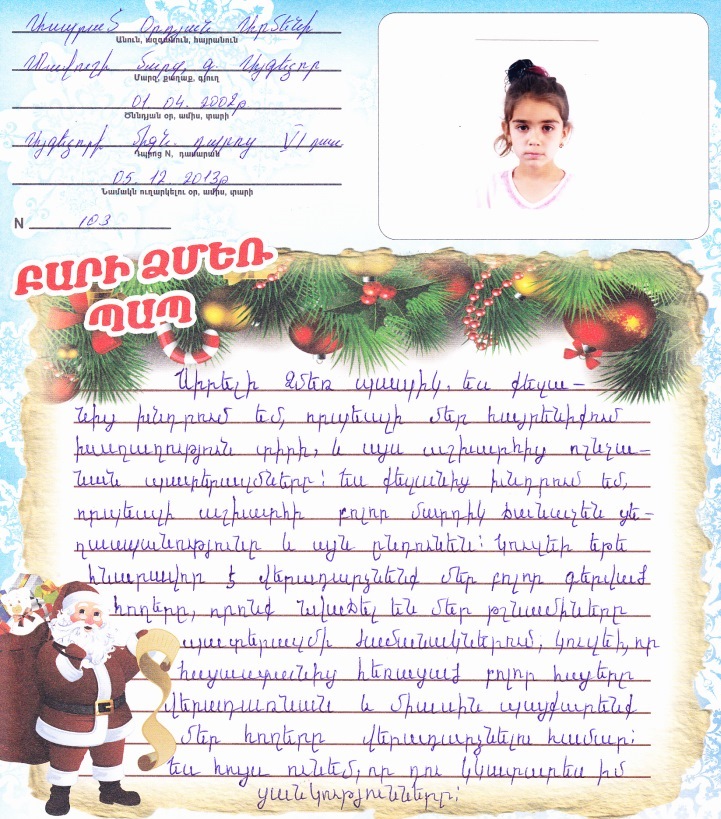 Օրդյան
Անուն, ազգանուն, հայրանուն
Տավուշի մարզ, գ. Այգեձոր
Մարզ, քաղաք, գյուղ
01. 04. 2002թ
Ծննդյան օր, ամիս, տարի
Այգեձորի միջն. դպրոց VI դաս
Դպրոց N, դասարան
05. 12. 2013թ
Նամակն ուղարկելու օր, ամիս, տարի
N 103
ԲԱՐԻ ՁՄԵՌ
ՊԱՊ
Սիրելի Ձմեռ պապիկ. ես քեզա-
նից խնդրում եմ, որպեսզի մեր հայրենիքում
խաղաղություն տիրի, և այս աշխարհից ոչնչա-
նան պատերազմները: Ես քեզանից խնդրում եմ,
որպեսզի աշխարհի բոլոր մարդիկ ճանաչեն ցե-
ղասպանությունը և այն ընդունեն: Կուզեի եթե
հնարավոր է վերադարձնենք մեր բոլոր գերված
հողերը, որոնք նվաճել են մեր թշնամիները
պատերազմի ժամանակներում, կուզեի, որ
հայաստանից հեռացած բոլոր հայերը
վերադառնան և միասին պայքարենք
մեր հողերը վերադարձնելու համար:
Ես հույս ունեմ, որ դու կկատարես իմ
ցանկությունները: